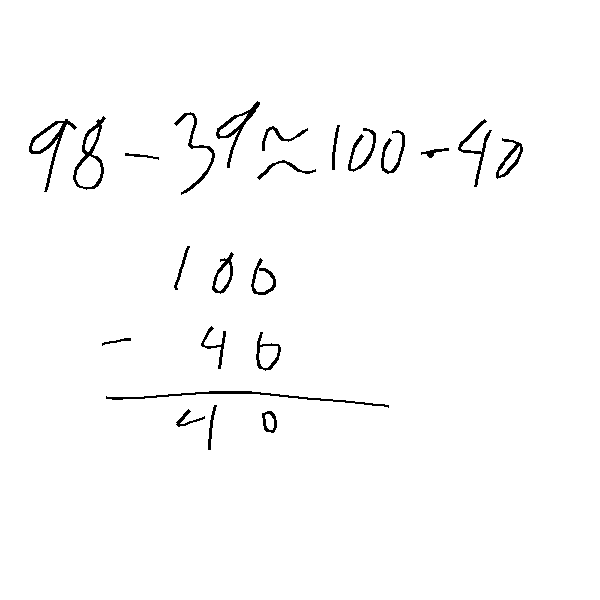 98 - 39 ≈ 100 - 40
100
- 40
40